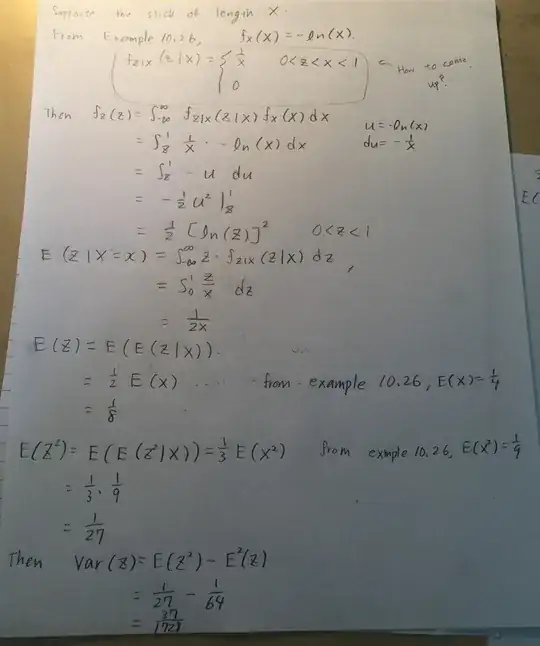 Suppose the stick of length X.
From Example 10.26, fx(x) = -ln(x).
fz|x(z|x) = { 1/x 0<z<x<1
0
← How to come up?
Then fz(z) = ∫_{-∞}^{∞} fz|x(z|x) fx(x) dx
u = -ln(x)
= ∫_z^1 1/x · -ln(x) dx
du = -1/x
= ∫_z^1 -u du
= -1/2 u² |_z^1
= 1/2 [ln(z)]² 0<z<1
E(z|X=x) = ∫_{-∞}^{∞} z · fz|x(z|x) dz,
= ∫_0^1 z/x dz
= 1/2x
E(z) = E(E(z|x)).
= 1/2 E(x) .... from example 10.26, E(x)=1/4
= 1/8
E(z²) = E(E(z²|x)) = 1/3 E(x²) from exmple 10.26, E(x²)=1/9
= 1/3 · 1/9
= 1/27
Then Var(z) = E(z²) - E²(z)
= 1/27 - 1/64
= 37/1728